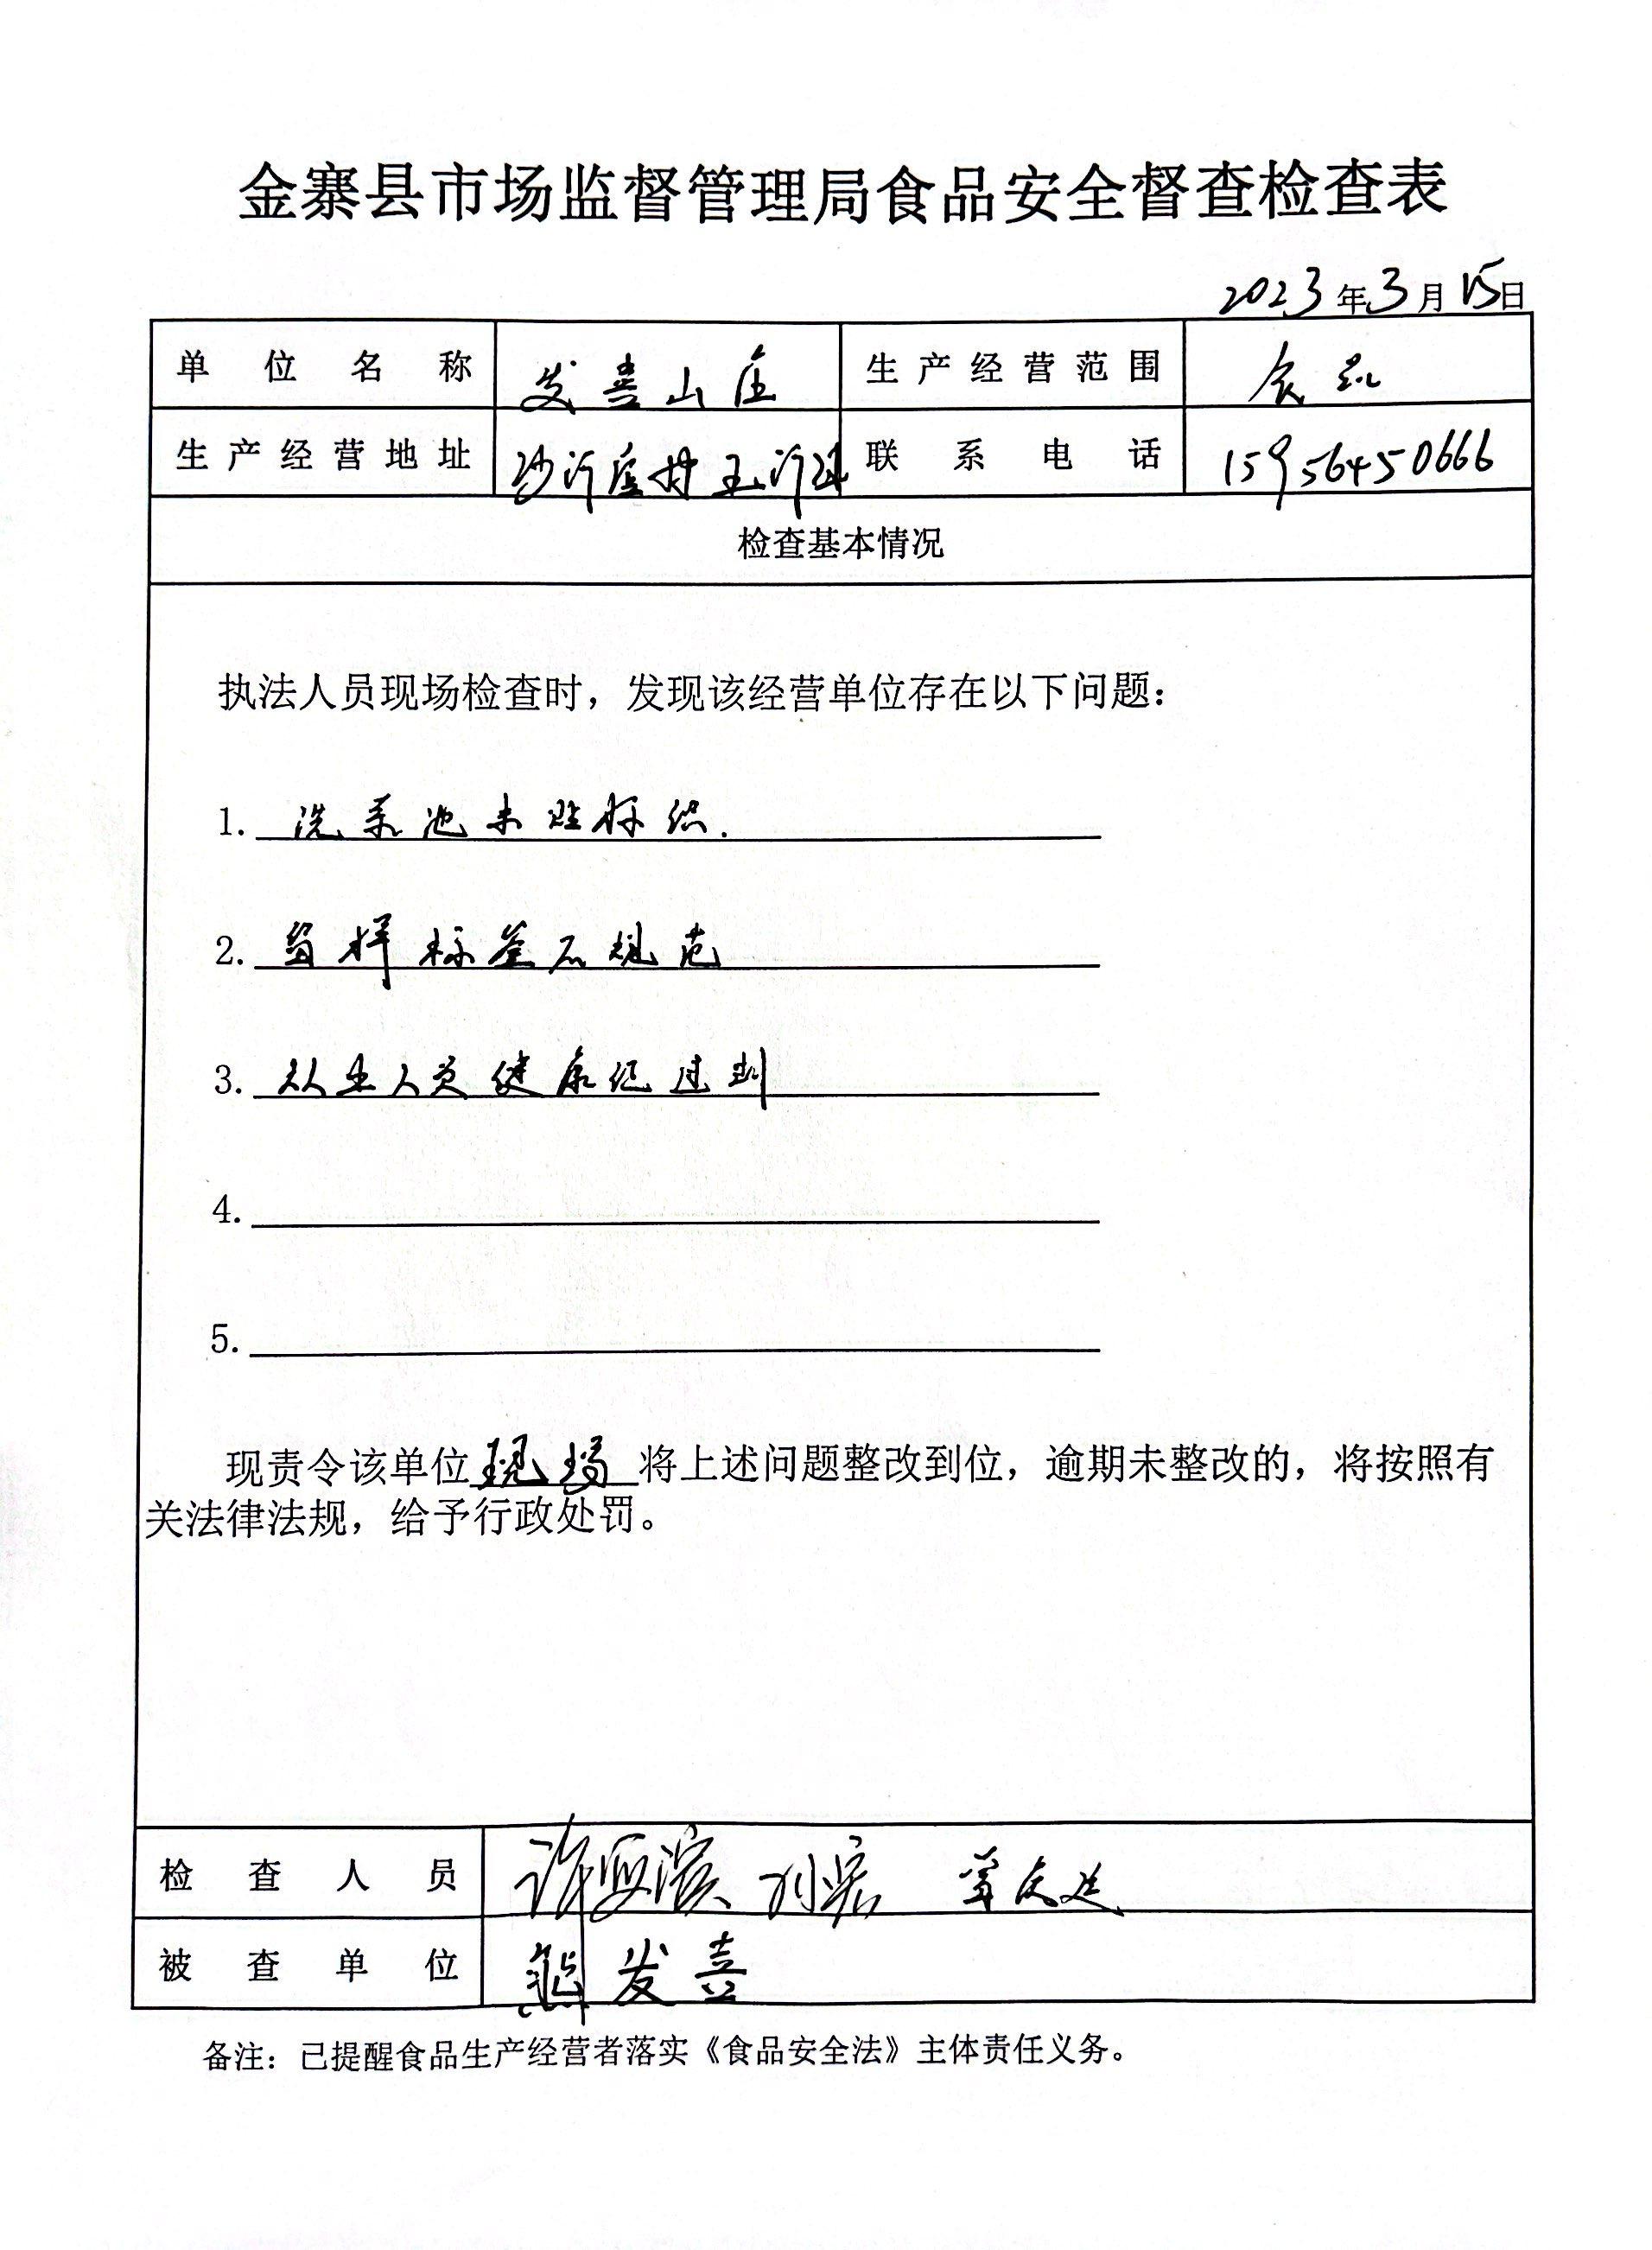 金寨县市场监督管理局食品安全督查检查表
2023年3月15日
单位名称 发喜山庄 生产经营范围 食品
生产经营地址 沙河店村王河组 联系电话 15956450666
检查基本情况
执法人员现场检查时，发现该经营单位存在以下问题：
1. 洗菜池未贴标识.
2. 留样标签不规范
3. 从业人员健康证过期
4.
5.
现责令该单位现场将上述问题整改到位，逾期未整改的，将按照有
关法律法规，给予行政处罚。
检查人员 刘宏
被查单位 熊发喜
备注：已提醒食品生产经营者落实《食品安全法》主体责任义务。